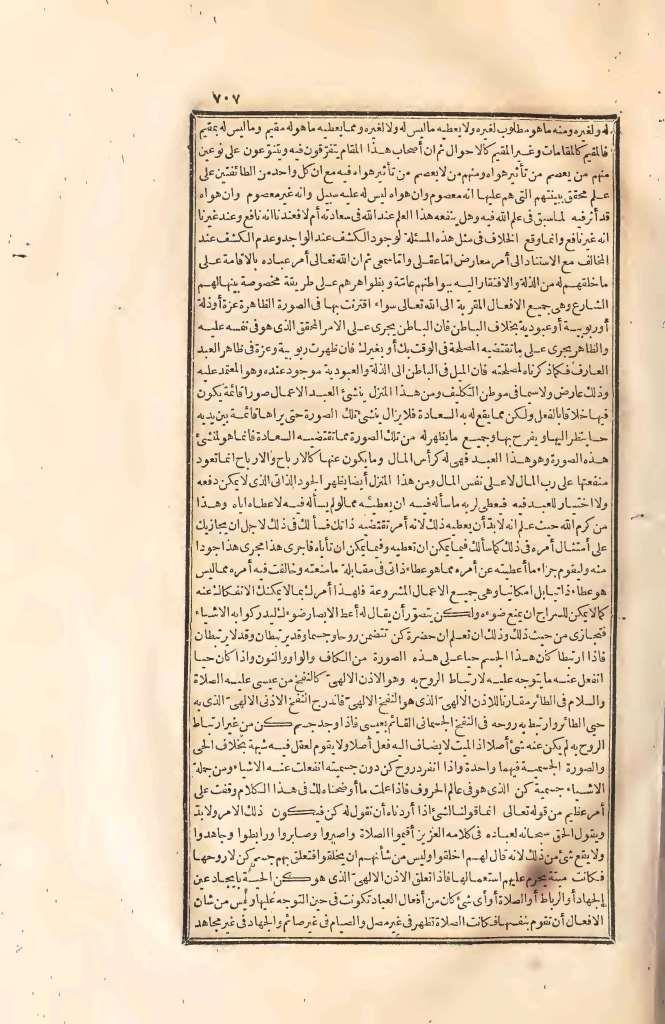 ٧٠٧
له ولغيره ومنه ما هو مطلوب لغيره ولا يعطيه ما ليس له ولا لغيره ومما يعطيه ما هو له مقيم وما ليس له بمقيم
فالمقيم كالمقامات وغير المقيم كالاحوال ثم ان أصحاب هذا المقام يتفرّقون فيه ويتنوّعون على نوعين
منهم من يعصم من تأثير هواه ومنهم من لا يعصم من تأثير هواه فيه مع ان كل واحد من الطائفتين على
علم محقق ببينتهم التى هم عليها انه معصوم وان هواه ليس له عليه سبيل وانه غير معصوم وان هواه
قد أثر فيه لما سبق فى علم الله فيه وهل ينفعه هذا العلم عند الله فى سعادته أم لا فعندنا انه نافع وعند غيرنا
انه غير نافع وانما وقع الخلاف فى مثل هذه المسئلة لوجود الكشف عند الواجد وعدم الكشف عند
المخالف مع الاستناد الى أمر معارض اما عقلى واما سمعى ثم ان الله تعالى أمر عباده بالاقامة على
ما خلقهم له من الذلة والافتقار اليه ببواطنهم عامّة وبظواهرهم على طريقة مخصوصة بينها لهم
الشارع وهى جميع الافعال المقربة الى الله تعالى سواء اقترنت بها فى الصورة الظاهرة عزة أو ذلة
أو ربوبية أو عبودية بخلاف الباطن فان الباطن يجرى على الامر المحقق الذى هو فى نفسه عليه
والظاهر يجرى على ما تقتضيه المصلحة فى الوقت بك أو بغيرك فان ظهرت ربوبية وعزة فى ظاهر العبد
العارف فكما ذكرناه لمصلحته فان الميل فى الباطن الى الذلة والعبودية موجود عنده وهو المعتمد عليه
وذلك عارض ولا سيما فى موطن التكليف ومن هذا المنزل ينشئ العبد الاعمال صورا قائمة يكون
فيها خلاقا بالفعل ولكن مما يقع له به السعادة فلا يزال ينشئ تلك الصورة حتى يراها قائمة بين يديه
حسا ينظر اليها ويفرح بها وجميع ما يظهر له من تلك الصورة مما تقتضيه السعادة فانما هو لمنشئ
هذه الصورة وهو هذا العبد فهى له كرأس المال وما يكون عنها كالارباح والارباح انما تعود
منفعتها على رب المال لا على نفس المال ومن هذا المنزل أيضا يظهر الجود الذاتى الذى لا يمكن دفعه
ولا اختيار للعبد فيه فيعطى لربه ما سأله فيه ان يعطيه مما لو لم يسأله فيه لاعطاه اياه وهذا
من كرم الله حيث علم انه لا بدّ أن يعطيه ذلك لانه أمر تقتضيه ذاتك فسألك فى ذلك لاجل ان يجازيك
على امتثال أمره فى ذلك كما سألك فيما يمكن ان تعطيه وفيما يمكن ان تأباه فاجرى هذا مجرى هذا جودا
منه وليقوم جزاء ما أعطيته عن أمره مما هو عطاء ذاتى فى مقابلة ما منعته وخالفت فيه أمره مما ليس
هو عطاء ذاتيا بل امكانيا وهى جميع الاعمال المشروعة فلهذا أمر لك بما لا يمكنك الانفكاك عنه
كما لا يمكن للسراج ان يمنع ضوءه ولكن يتصوّر أن يقال له أعط الابصار ضوءك ليدركوا به الاشياء
فتجازى من حيث ذلك وذلك ان تعلم ان حضرة كن تتضمن روحا وجسما وقد يرتبطان وقد لا يرتبطان
فاذا ارتبطا كان هذا الجسم حيا على هذه الصورة من الكاف والواو والنون واذا كان حيا
انفعل عنه ما يتوجه عليه لارتباط الروح به وهو الاذن الالهىّ كالنفخ من عيسى عليه الصلاة
والسلام فى الطائر مقارنا للاذن الالهىّ الذى هو النفخ الالهىّ فاندرج النفخ الاذنى الالهىّ الذى به
حيى الطائر وارتبط به روحه فى النفخ الجسمانى القائم بعيسى فاذا وجد جسم كن من غير ارتباط
الروح به لم يكن عنه شئ أصلا اذ الميت لا يضاف اليه فعل أصلا ولا يقوم لعقل فيه شبهة بخلاف الحى
والصورة الجسمية فيهما واحدة واذا انفرد روح كن دون جسميته انفعلت عنه الاشياء ومن جملة
الاشياء جسمية كن الذى هو فى عالم الحروف فاذا علمت ما أوضحناه لك فى هذا الكلام وقفت على
أمر عظيم من قوله تعالى انما قولنا لشئ اذا أردناه أن نقول له كن فيكون ذلك الامر ولا بدّ
ويقول الحق سبحانه لعباده فى كلامه العزيز أقيموا الصلاة واصبروا وصابروا ورابطوا وجاهدوا
ولا يقع شئ من ذلك لانه قال لهم اخلقوا وليس من شأنهم ان يخلقوا فتعلق بهم جسم كن لا روحها
فكانت ميتة يحرم عليهم استعمالها فاذا تعلق الاذن الالهىّ الذى هو كن الحسّة بايجاد عين
الجهاد أو الرباط أو الصلاة أو أى شئ كان من أفعال العباد تكونت فى حين التوجه عليها وليس من شأن
الافعال أن تقوم بنفسها فكانت الصلاة تظهر فى غير مصل والصيام فى غير صائم والجهاد فى غير مجاهد